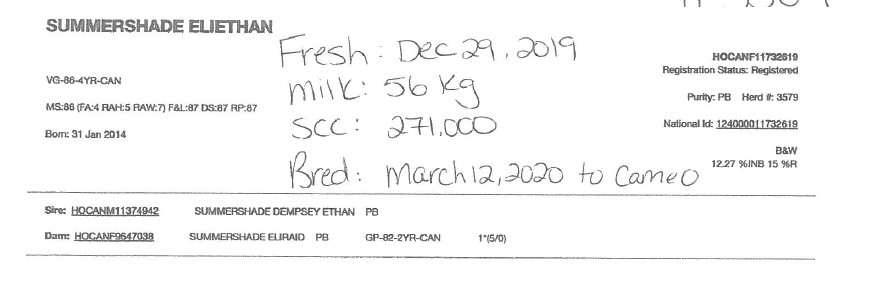 SUMMERSHADE ELIETHAN
Fresh: Dec 29, 2019
HOCANF11732619
Registration Status: Registered
VG-86-4YR-CAN
Milk: 56 Kg
Purity: PB Herd #: 3579
MS:86 (FA:4 RAH:5 RAW:7) F&L:87 DS:87 RP:87
SCC: 271,000
National Id: 124000011732619
Born: 31 Jan 2014
B&W
12.27 %INB 15 %R
Bred: March 12, 2020 to Cameo
Sire: HOCANM11374942 SUMMERSHADE DEMPSEY ETHAN PB
Dam: HOCANF9647038 SUMMERSHADE ELIRAID PB GP-82-2YR-CAN 1*(5/0)